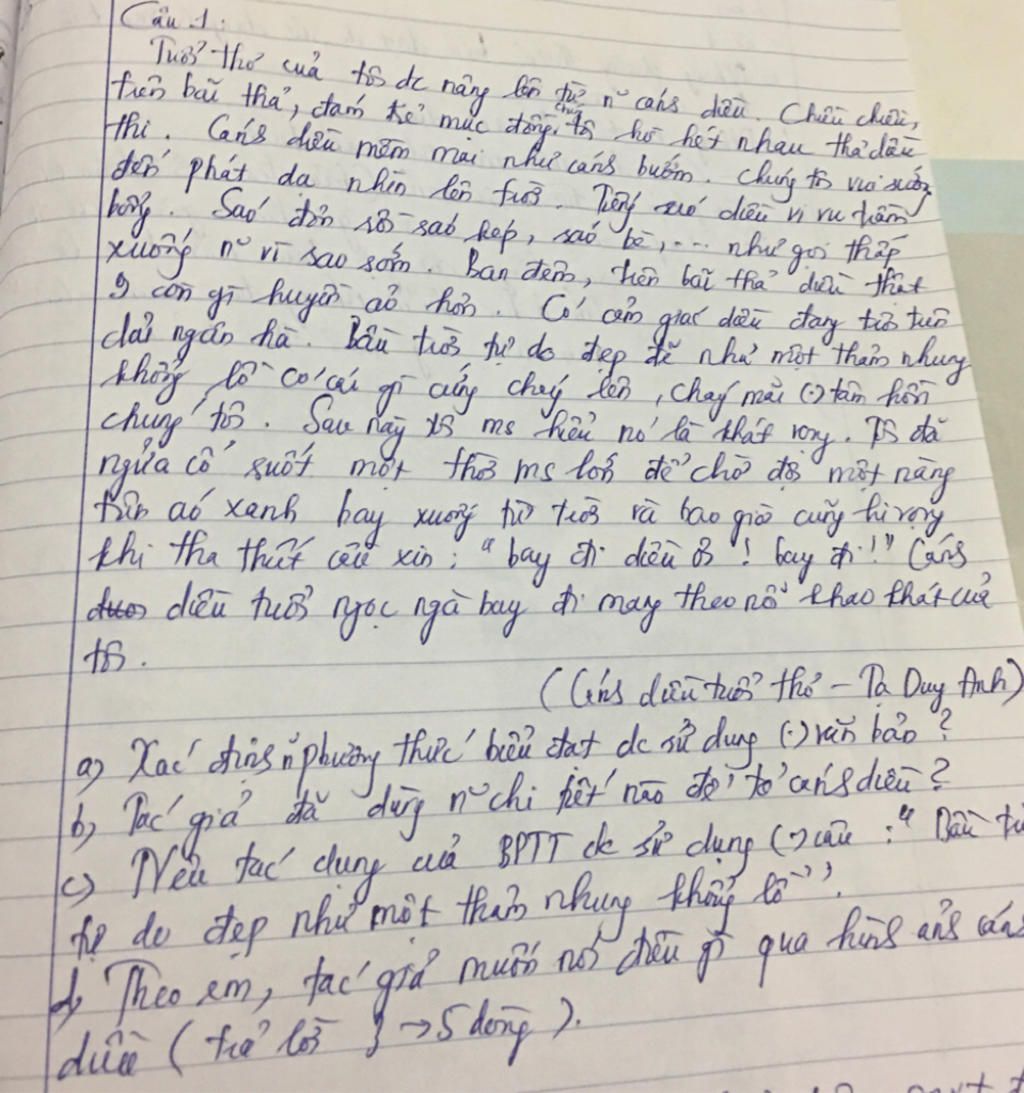 Câu 1:
Tuổi thơ của tô dc nâng lên từ n~ cánh diều. Chiều chiều,
trên bãi thả, đám trẻ mục đồng chúng tô hò hét nhau thả diều
thi. Cánh diều mềm mại như cánh bướm. Chúng tô vui sướng
đến phát dạ nhìn lên trời. Tiếng sáo diều vi vu trầm
bổng. Sáo đơn rồi sáo kép, sáo bè,... như gọi thấp
xuống n~ vì sao sớm. Ban đêm, trên bãi thả diều thật
0 còn gì huyền ảo hơn. Có cảm giác diều đang trôi trên
dải ngân hà. Bầu trời tự do đẹp đẽ như một thảm nhung
khổng lồ có cái gì cứ cháy lên, cháy mãi (.) tâm hồn
chúng tô. Sau này tô ms hiểu nó là khát vọng. Tô đã
ngửa cổ suốt một thời ms lớn để chờ đợi một nàng
tiên áo xanh bay xuống từ trời và bao giờ cũng hi vọng
khi tha thiết cầu xin: "bay đi diều ơi! bay đi!" Cánh
diều tuổi ngọc ngà bay đi mang theo nỗi khao khát của
tô.
(Cánh diều tuổi thơ - Tạ Duy Anh)
a) Xác định n~ phương thức biểu đạt dc sử dụng (.) văn bản?
b) Tác giả đã dùng n~ chi tiết nào để tả cánh diều?
c) Nêu tác dụng của BPTT dc sử dụng (.) câu: "Bầu
tự do đẹp như một thảm nhung khổng lồ".
d) Theo em, tác giả muốn nói điều gì qua hình ảnh cánh
diều (trả lời 3 → 5 dòng).